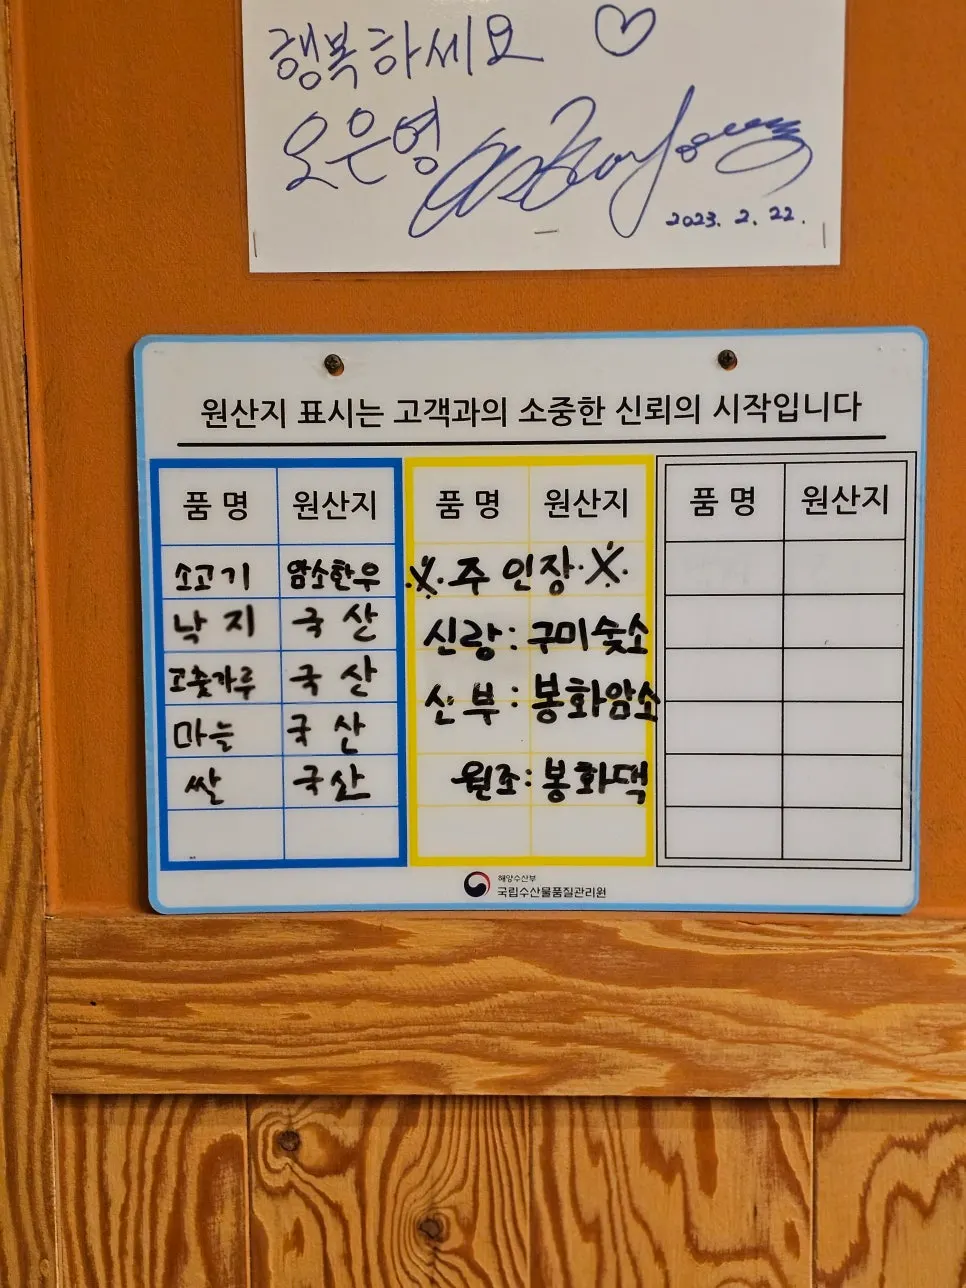 행복하세요 ♡
오은영
2023. 2. 22.
원산지 표시는 고객과의 소중한 신뢰의 시작입니다
품 명 원산지
소고기 암소한우
낙지 국산
고춧가루 국산
마늘 국산
쌀 국산
품 명 원산지
※주인장※
신랑: 구미숫소
신부: 봉화암소
원조: 봉화댁
품 명 원산지
해양수산부
국립수산물품질관리원